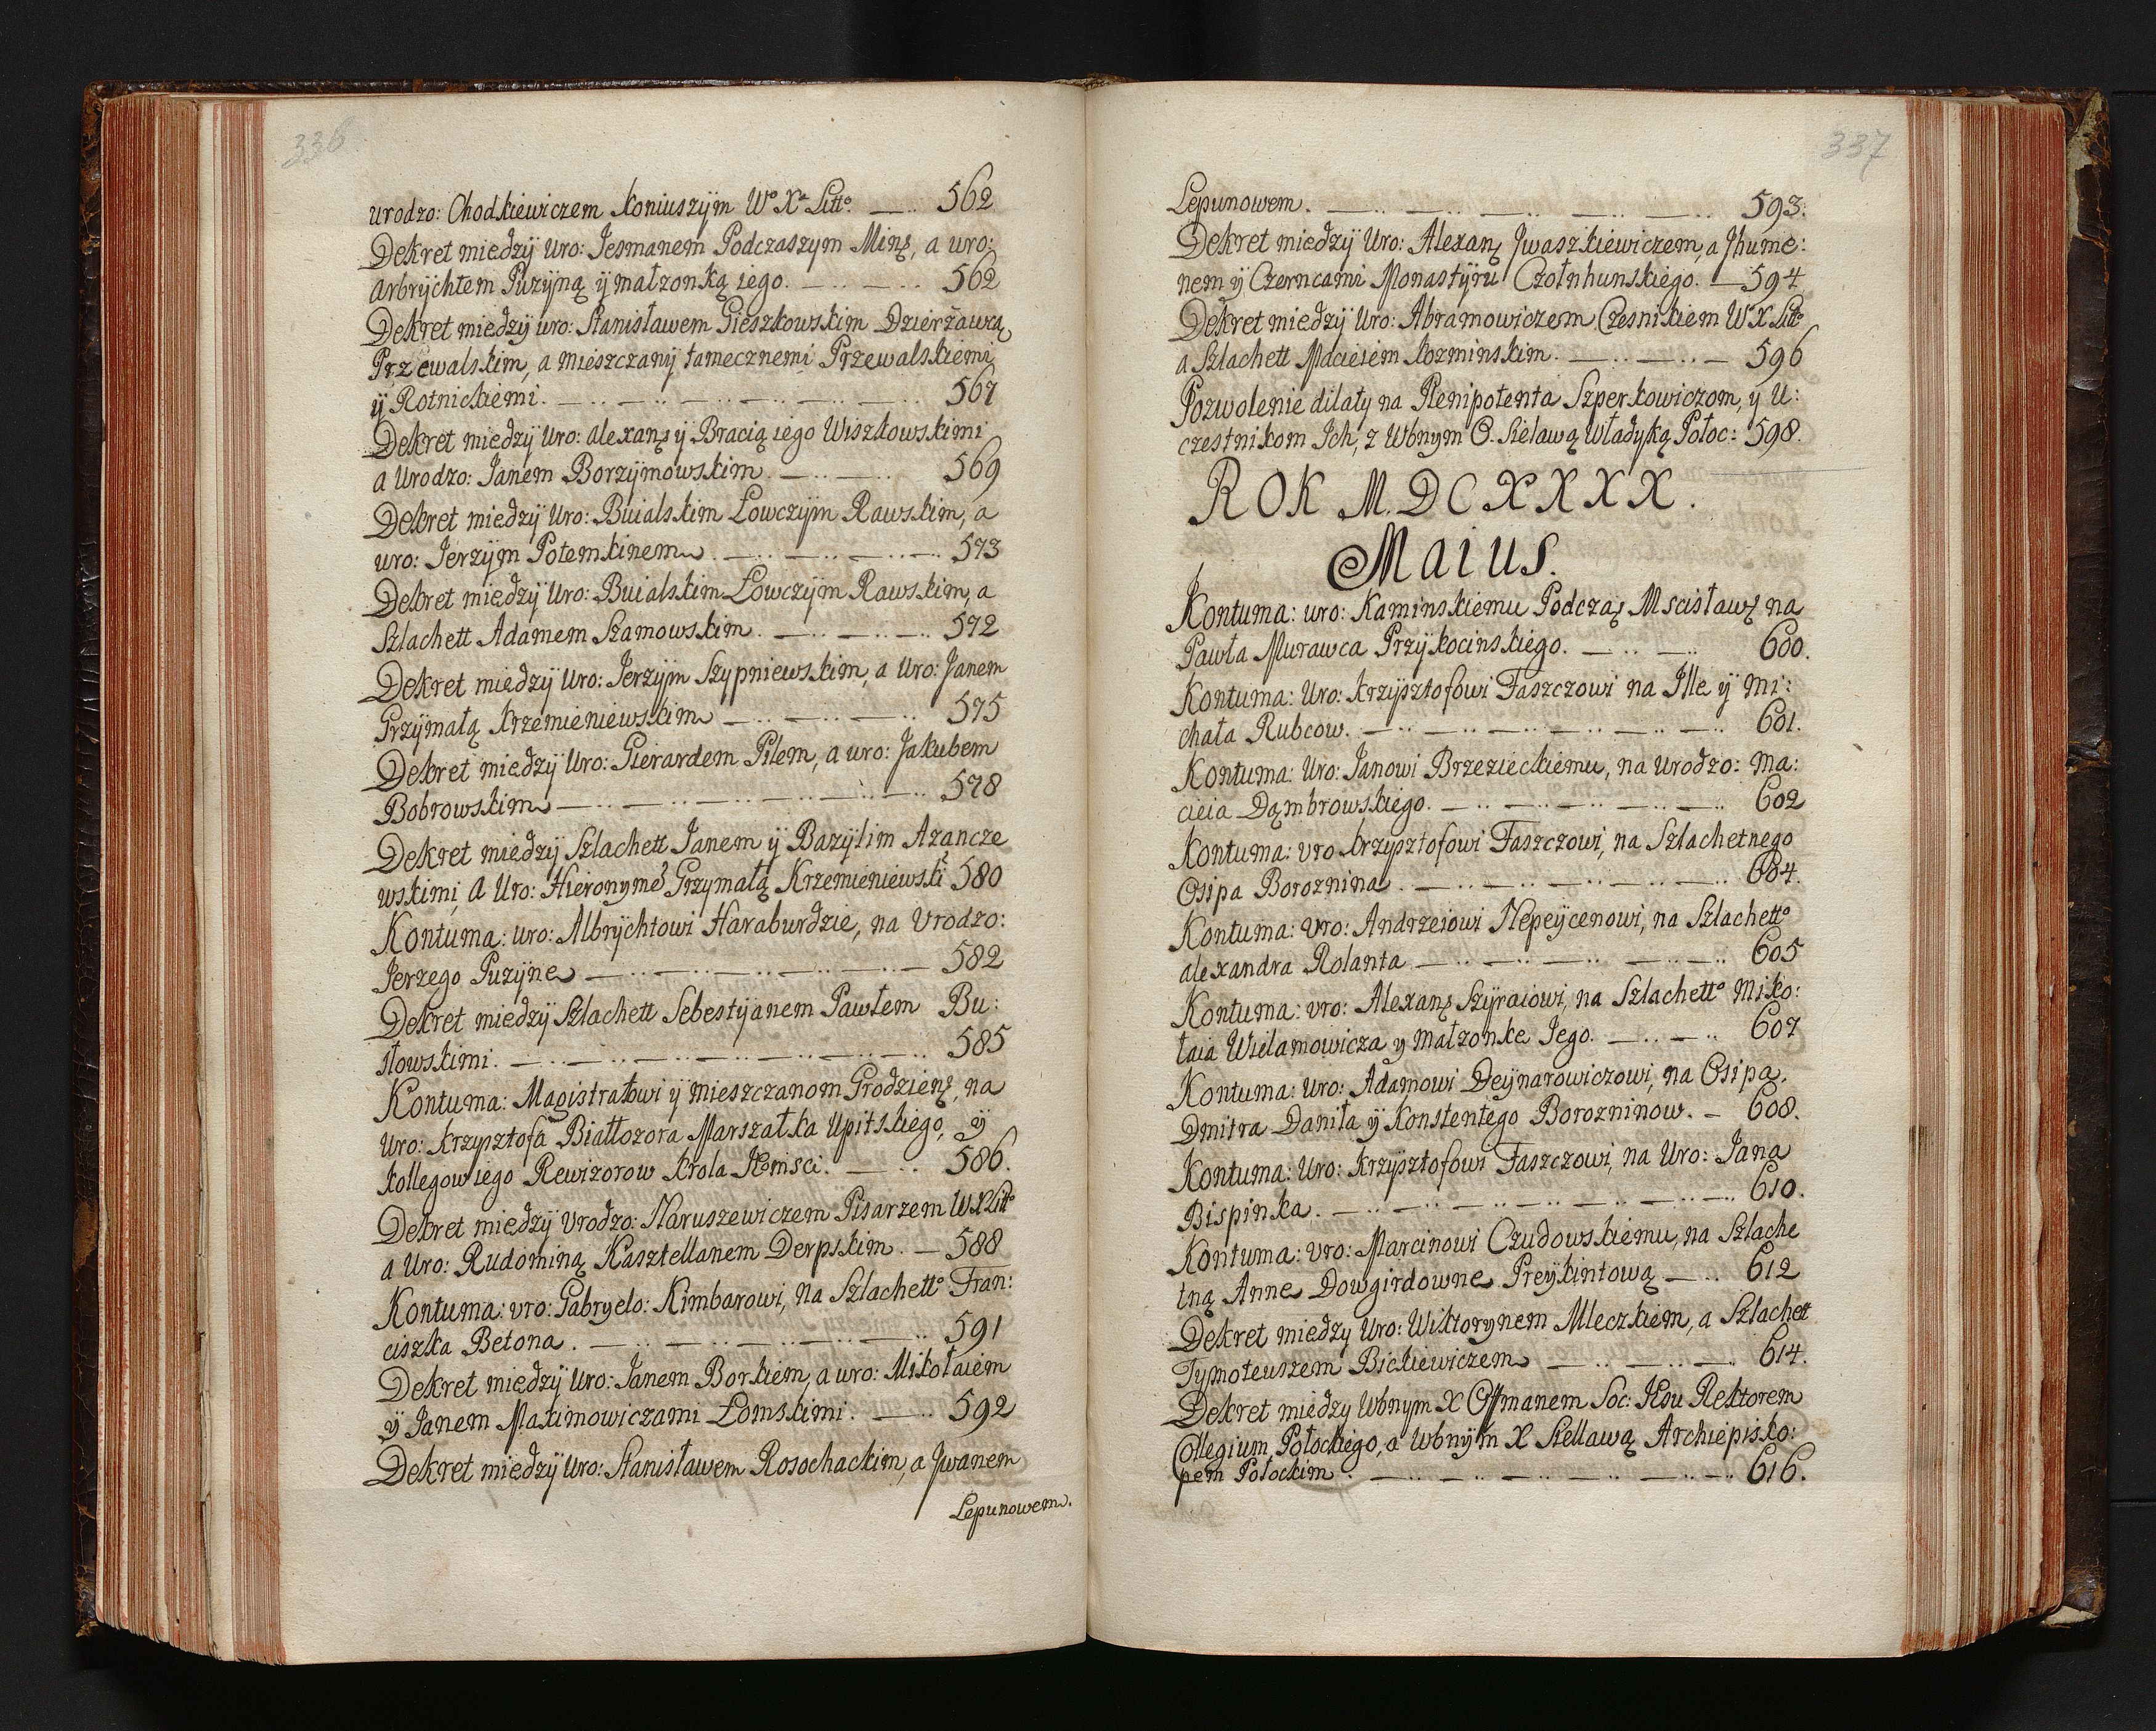 336
urodzo: Chodkiewiczem Koniuszÿm Wº Xª Littº. 562
Dekret miedzÿ Uro: Jesmanem Podczaszym Minę, a uro:
Arbrÿchtem Puzÿną ÿ małzonką iego. 562
Dekret miedzÿ uro: Stanisławem Gieszkowskim Dzierżawcą
Przewalskim, a mieszczanÿ tamecznemi Przewalskiemi
ÿ Rotnickiemi. 567
Dekret miedzÿ Uro: Alexanę ÿ Bracią iego Wiszkowskimi
a Urodzo: Janem Borzÿmowskim 569
Dekret miedzÿ Uro: Buialskim Łowczÿm Rawskim, a
uro: Jerzÿm Potemkinem 573
Dekret miedzÿ Uro: Buialskim Łowczÿm Rawskim, a
Szlachett Adamem Szamowskim. 572
Dekret miedzÿ Uro: Jerzÿm Szypniewskim, a Uro: Janem
Grzÿmałą Krzemieniewskim 575
Dekret miedzÿ Uro: Gierardem Pilem, a uro: Jakubem
Bobrowskim 578
Dekret miedzÿ Szlachett Janem ÿ Bazÿlim Azancze
wskimi, a Uro: Hieronyme Grzymałą Krzemieniewski 580
Kontuma: uro: Albrÿchtowi Haraburdzie, na Urodzo:
Jerzego Puzÿne 582
Dekret miedzÿ Szlachett Sebestÿanem Pawłem Bu:
słowskimi. 585
Kontuma: Magistratowi ÿ mieszczanom Grodzienę, na
Uro: Krzysztofa Białłozora Marszałka Upitskiego, ÿ
Kollegow iego Rewizorow Krola Jeºmsci. 586.
Dekret miedzÿ Urodzo: Naruszewiczem Pisarzem WXLittº
a Uro: Rudominą Kasztellanem Derpskim. 588
Kontuma: vro: Gabryelo: Kimbarowi, na Szlachettº Fran:
ciszka Betona. 591
Dekret miedzÿ Uro: Janem Borkiem, a uro: Mikołaiem
ÿ Janem Maximowiczami Łomskimi. 592
Dekret miedzÿ Uro: Stanisławem Rosochackim, a Jwanem
Lepunowem.
337
Lepunowem. 593.
Dekret miedzÿ Uro: Alexanę Jwaszkiewiczem, a Jhume:
nem ÿ Czerncami Monastÿru Czołnhunskiego. 594
Dekret miedzÿ Uro: Abramowiczem Czesnikiem W X Littº
a Szlachett Maciejem Kozminskim. 596
Pozwolenie dilaty na Plenipotenta Szperkowiczom, y U:
czestnikom Jch, z Wbnym O. Sielawą Władyką Połoc: 598.
ROK M.DCXXXX.
Maius.
Kontuma: uro: Kaminskiemu Podczaę Mscisławę na
Pawła Murawca Przÿkocinskiego. 600.
Kontuma: Uro: Krzÿsztofowi Faszczowi na Jlle ÿ Mi:
chała Rubcow. 601.
Kontuma: Uro: Janowi Brzezieckiemu, na Urodzo: Ma:
cieia Dąmbrowskiego. 602
Kontuma: vro Krzysztofowi Faszczowi, na Szlachetnego
Osipa Boroznina. 604.
Kontuma: vro: Andrzeiowi Nepeÿcenowi, na Szlachettº
Alexandra Rolanta 605
Kontuma: vro: Alexanę Szÿraiowi, na Szlachettº Miko:
łaia Wielamowicza y Małzonke Jego. 607
Kontuma: Uro: Adamowi Deÿnarowiczowi, na Osipa,
Dmitra Daniła ÿ Konstentego Borozninow. 608.
Kontuma: Uro: Krzÿsztofowi Faszczowi, na Uro: Jana
Bispinka. 610.
Kontuma: vro: Marcinowi Czudowskiemu, na Szlache
tną Anne Dowgirdowne Preÿkintową 612
Dekret miedzy Uro: Wiktorynem Mleczkiem, a Szlachett
Tymoteuszem Bickiewiczem 614.
Dekret miedzy Wbnym X Offmanem Soc: Jesu Rektorem
Collegium Połockiego, a Wbnÿm X Siellawą Archiepisko:
pem Połockim. 616.